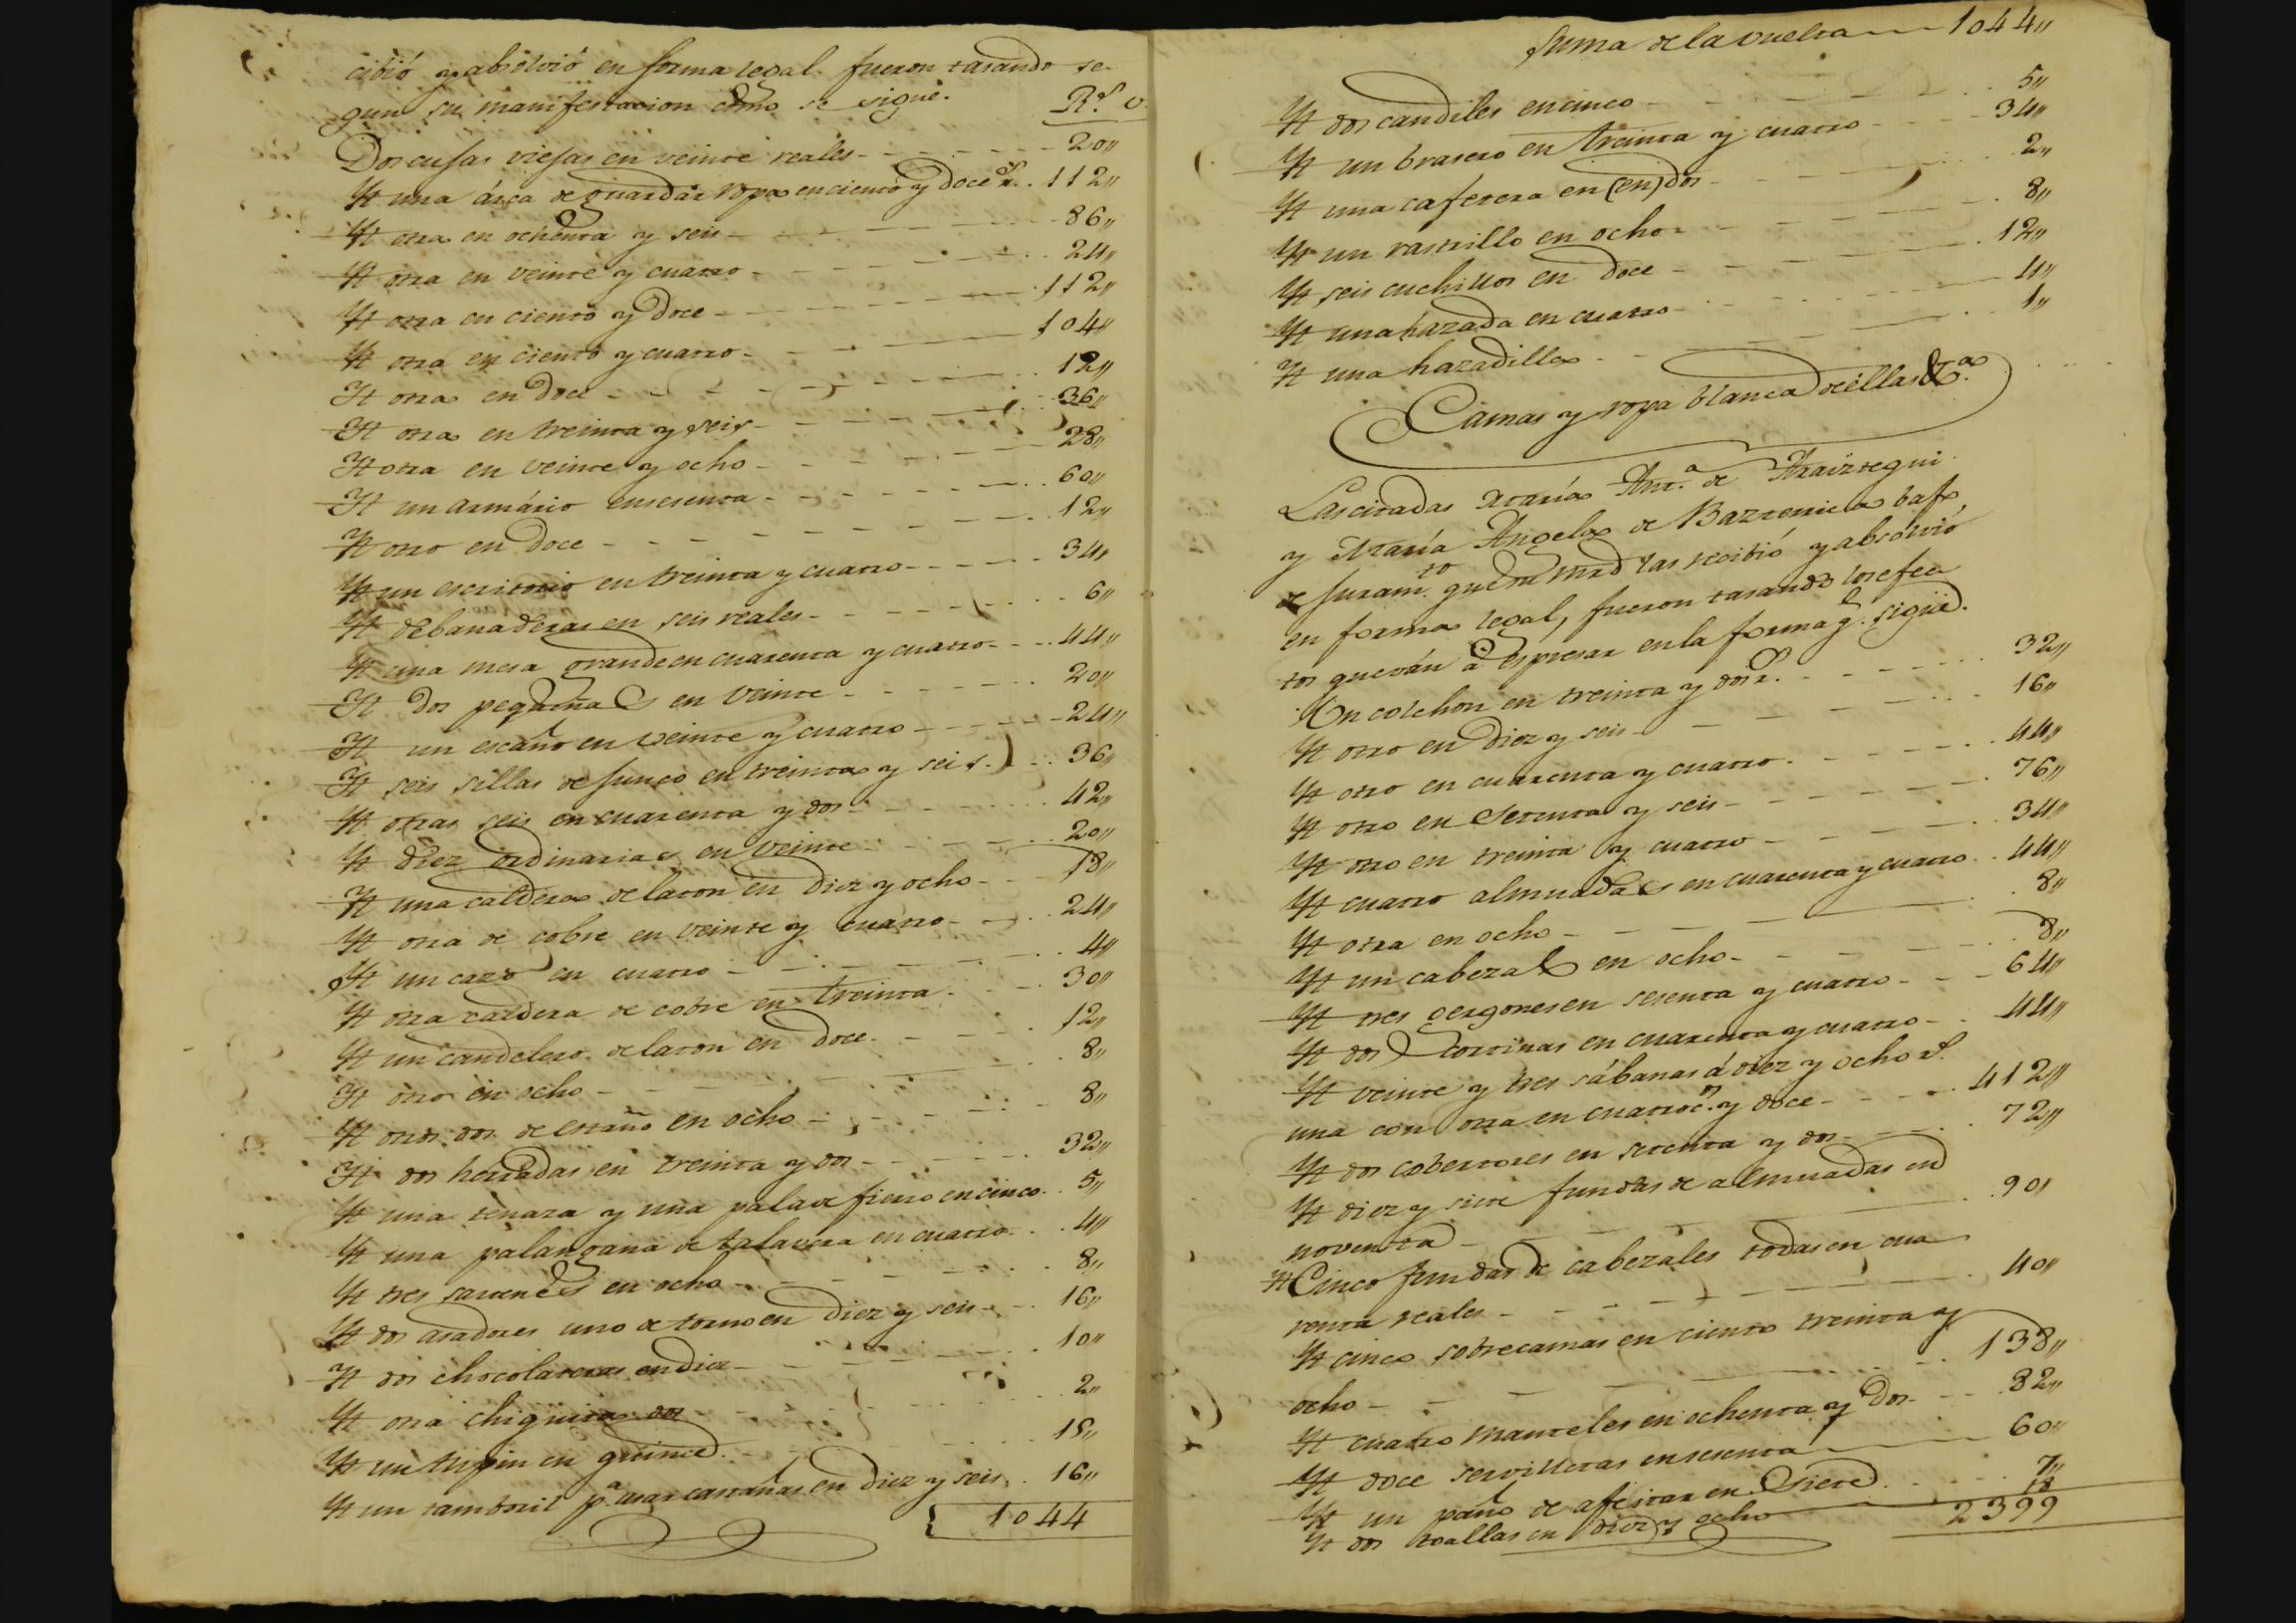 cibió y absolvió en forma legal. fueron tasando se-
gun su manifestacion como se sigue. R.s v.
Dos cujas viejas en veinte reales 20,,
Yt una árca de guardar ropa en ciento y doce r.s 112,,
Yt otra en ochenta y seis 86,,
Yt otra en veinte y cuatro 24,,
Yt otra en ciento y doce 112,,
Yt otra en ciento y cuatro 104,,
Yt otra en doce 12,,
Yt otra en treinta y seis 36,,
Yt otra en veinte y ocho 28,,
Yt un armário en sesenta 60,,
Yt otro en doce 12,,
Yt un escritorio en treinta y cuatro 34,,
Yt debanaderas en seis reales 6,,
Yt una mesa grande en cuarenta y cuatro 44,,
Yt dos pequeñas en veinte 20,,
Yt un escaño en veinte y cuatro 24,,
Yt seis sillas de junco en treinta y seis 36,,
Yt otras seis en cuarenta y dos 42,,
Yt diez ordinarias en veinte 20,,
Yt una caldera de laton en diez y ocho 18,,
Yt otra de cobre en veinte y cuatro 24,,
Yt un cazo en cuatro 4,,
Yt otra caldera de cobre en treinta 30,,
Yt un candelero de laton en doce 12,,
Yt otro en ocho 8,,
Yt otros dos de estaño en ocho 8,,
Yt dos herradas en treinta y dos 32,,
Yt una tenaza y una pala de fierro en cinco 5,,
Yt una palangana de talavera en cuatro 4,,
Yt tres sartenes en ocho 8,,
Yt dos asadores uno de torno en diez y seis 16,,
Yt dos chocolateras en diez 10,,
Yt otra chiquita dos 2,,
Yt un en quince 15,,
Yt un tamboril p.a asar castañas en diez y seis 16,,
1044
Suma de la vuelta 1044,,
Yt dos candiles en cinco 5,,
Yt un brasero en treinta y cuatro 34,,
Yt una cafetera en (en) dos 2,,
Yt un rastrillo en ocho 8,,
Yt seis cuchillos en doce 12,,
Yt una hazada en cuatro 4,,
Yt una hazadilla 1,,
Camas y ropa blanca de éllas &.a
Las citadas María Ant.a de Araiztegui
y María Angela de Bazterrica bajo
de juram.to que su mrd las recibió y absolvió
en forma legal, fueron tasando los efec
tos que ván á espresar en la forma q.e sigue.
Un colchon en treinta y dos r.s 32,,
Yt otro en diez y seis 16,,
Yt otro en cuarenta y cuatro 44,,
Yt otro en setenta y seis 76,,
Yt otro en treinta y cuatro 34,,
Yt cuatro almuadas en cuarenta y cuatro 44,,
Yt otra en ocho 8,,
Yt un cabezal en ocho 8,,
Yt tres gergones en sesenta y cuatro 64,,
Yt dos cortinas en cuarenta y cuatro 44,,
Yt veinte y tres sábanas á diez y ocho r.s
una con otra en cuatroc.s y doce 412,,
Yt dos cobertores en setenta y dos 72,,
Yt diez y siete fundas de almuadas en
noventa 90,,
Yt Cinco fundas de cabezales todas en cua
renta reales 40,,
Yt cinco sobrecamas en ciento treinta y
ocho 138,,
Yt cuatro manteles en ochenta y dos 82,,
Yt doce servilletas en sesenta 60,,
Yt un paño de afeitar en siete 7,,
Yt dos toallas en diez y ocho 18
2399